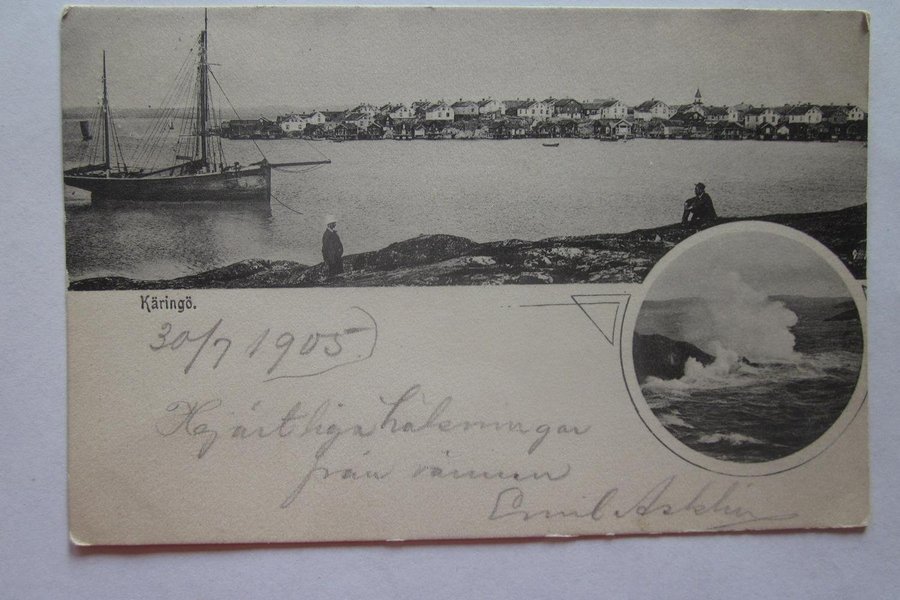 Käringö.
30/7 1905.
Hjärtliga hälsningar
från vännen
Emil Asklin